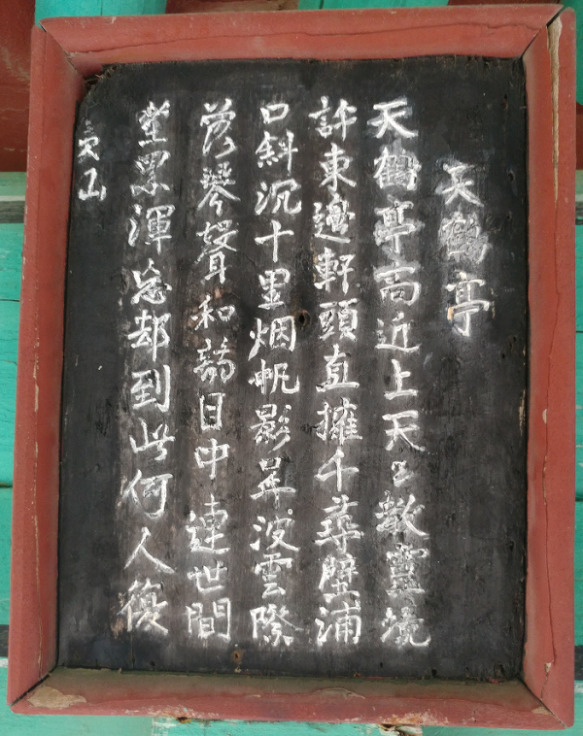 天鶴亭
天鶴亭高近上天〻教靈境
許東邊軒頭直擁千尋壁浦
口斜沉十里烟帆影昇波雲際
落琴聲和日中連世間
塵累渾忘却到此何人復
山